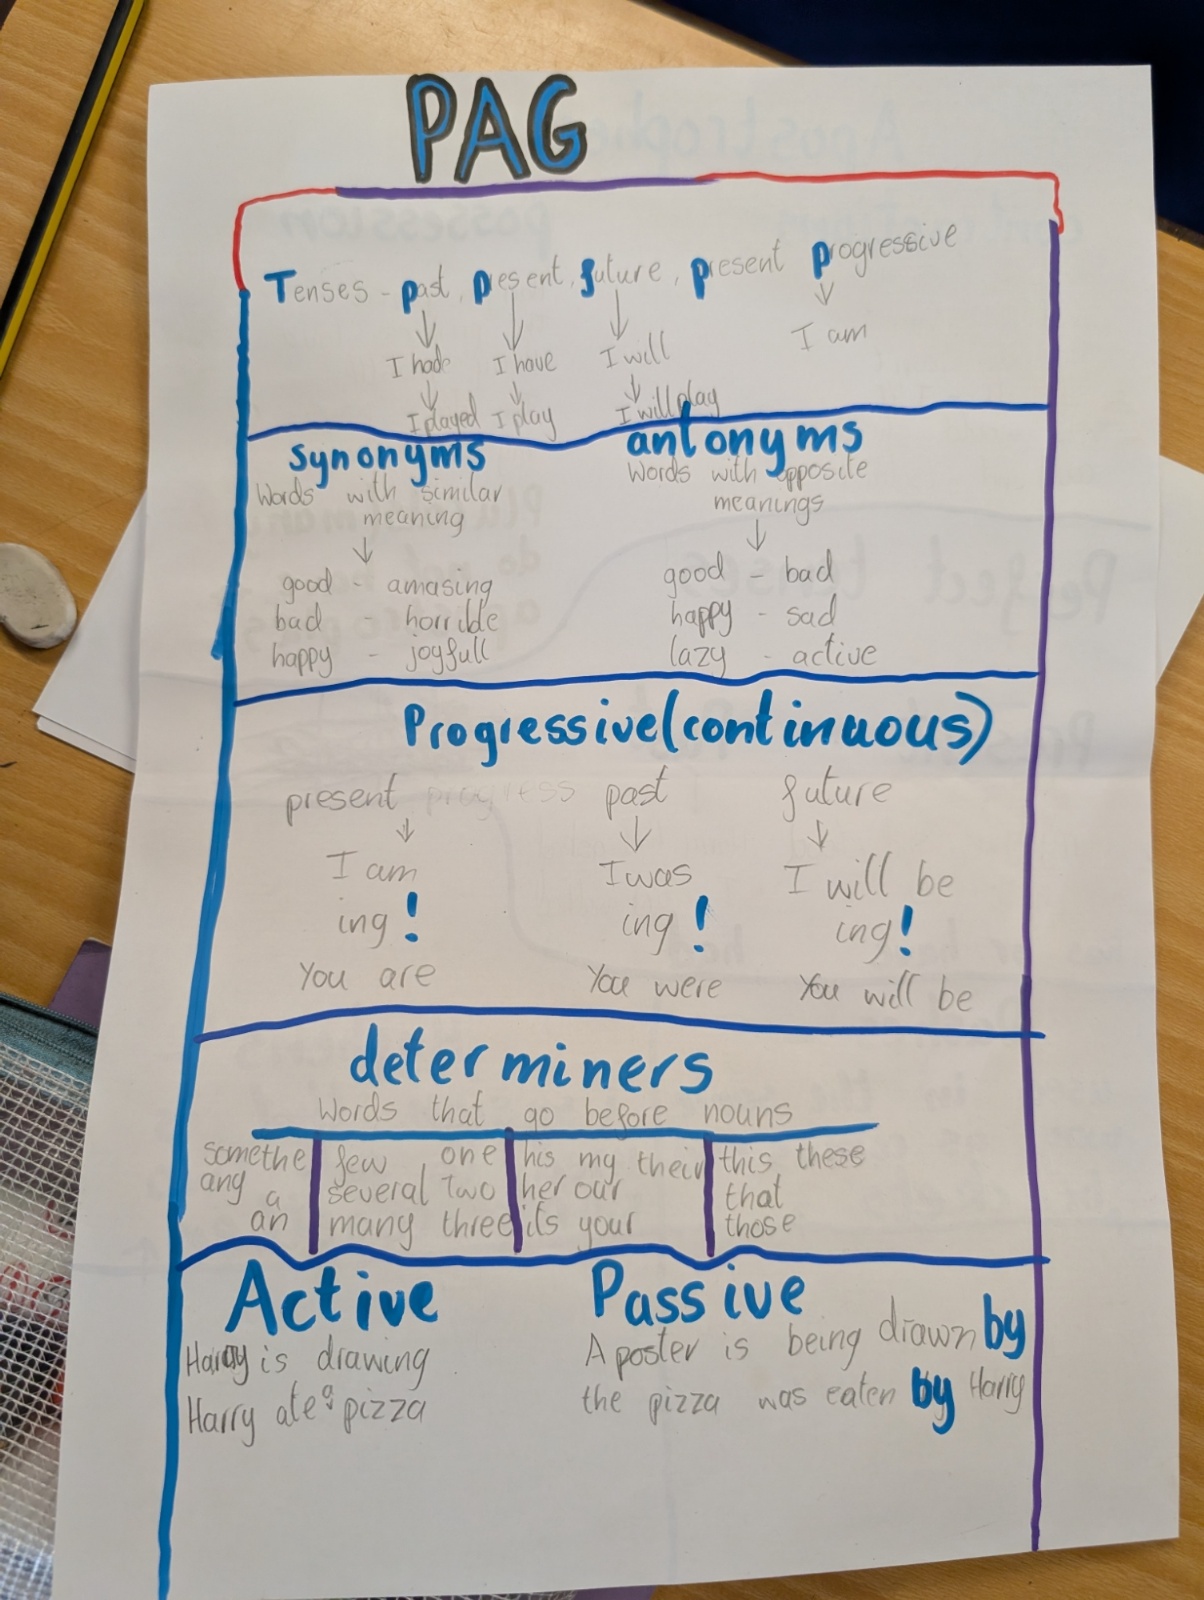 PAG
Tenses - past, present, future, present progressive
I had I have I will I am
I played I play I will play
synonyms antonyms
Words with similar meaning
Words with opposite meanings
good - amasing
bad - horrible
happy - joyfull
good - bad
happy - sad
lazy - active
Progressive (continuous)
present progress past future
I am I was I will be
ing! ing! ing!
You are You were You will be
determiners
Words that go before nouns
some the few one his my their this these
any a several two her our that
an many three its your those
Active Passive
Harry is drawing
Harry ate a pizza
A poster is being drawn by
the pizza was eaten by Harry